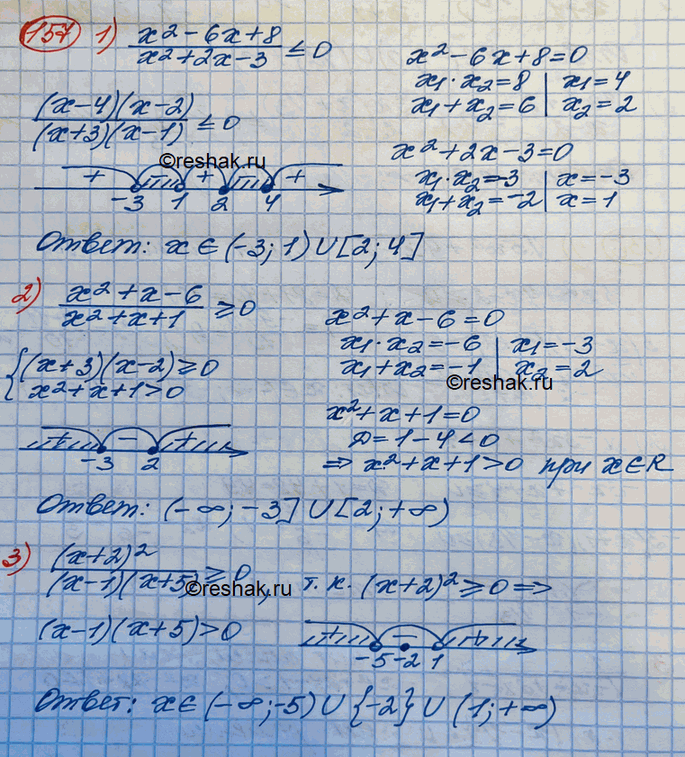 157 1) (x²-6x+8)/(x²+2x-3) ≤ 0
x²-6x+8=0
x₁·x₂=8 | x₁=4
x₁+x₂=6 | x₂=2
((x-4)(x-2))/((x+3)(x-1)) ≤ 0
©reshak.ru
+ - + - +
-3 1 2 4
x²+2x-3=0
x₁·x₂=-3 | x=-3
x₁+x₂=-2 | x=1
Ответ: x∈(-3;1)∪[2;4]
2) (x²+x-6)/(x²+x+1) ≥ 0
x²+x-6=0
x₁·x₂=-6 | x₁=-3
x₁+x₂=-1 | x₂=2
©reshak.ru
{(x+3)(x-2)≥0
x²+x+1>0
+ - +
-3 2
x²+x+1=0
D=1-4<0
⇒ x²+x+1>0 при x∈R
Ответ: (-∞;-3]∪[2;+∞)
3) (x+2)²/((x-1)(x+5)) ≥ 0, т.к. (x+2)²≥0 ⇒
©reshak.ru
(x-1)(x+5)>0
+ - +
-5 -2 1
Ответ: x∈(-∞;-5)∪{-2}∪(1;+∞)